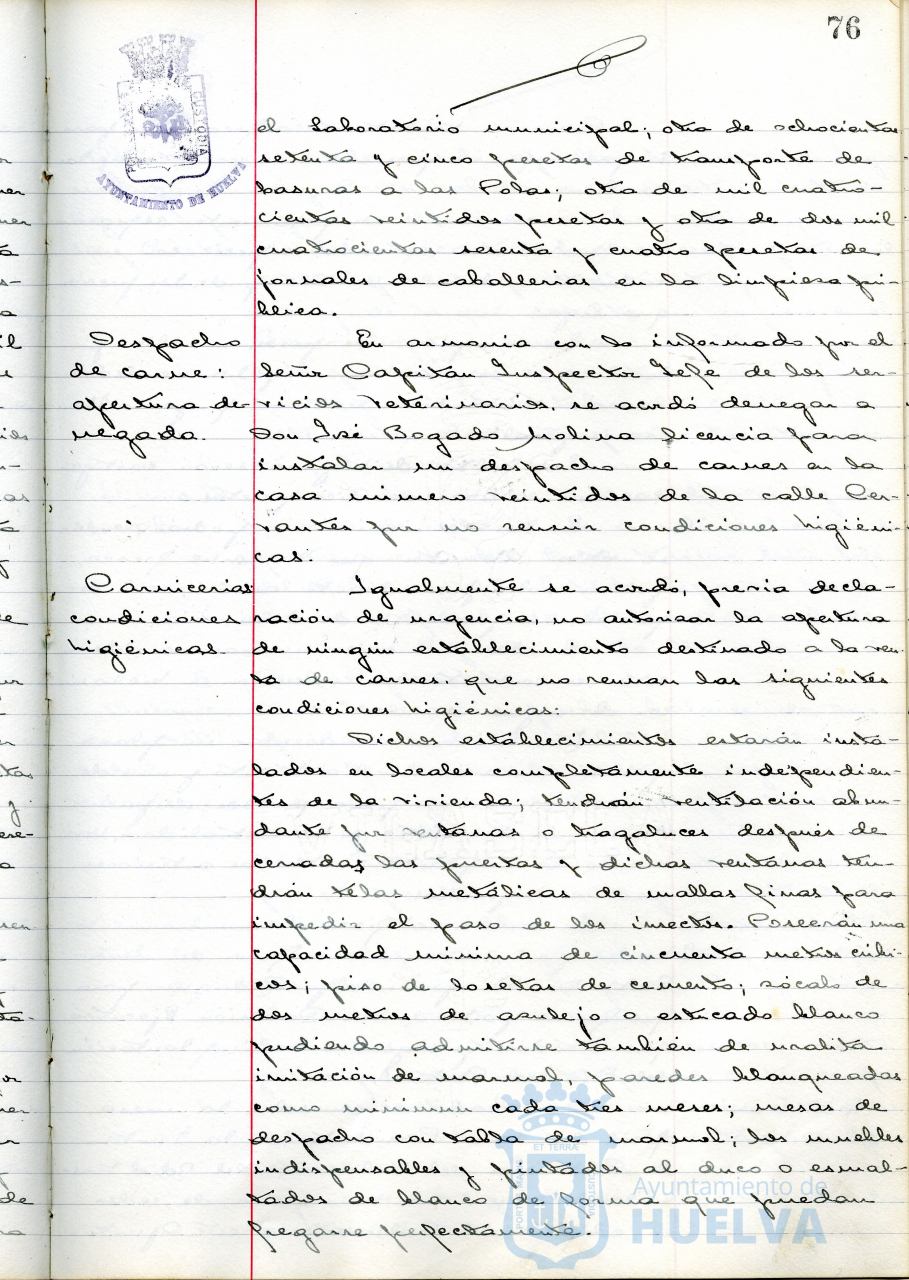 76
AYUNTAMIENTO DE HUELVA
el Laboratorio municipal; otra de ochocientas
setenta y cinco pesetas de transporte de
basuras a las Polas; otra de mil cuatro-
cientas veintidos pesetas y otra de dos mil
cuatrocientas sesenta y cuatro pesetas de
jornales de caballerias en la limpieza pú-
blica.
Despacho
de carne:
apertura de-
negada.
En armonia con lo informado por el
Señor Capitán Inspector Jefe de los ser-
vicios Veterinarios, se acordó denegar a
Don José Bogado Molina licencia para
instalar un despacho de carnes en la
casa número veintidos de la calle Cer-
vantes por no reunir condiciones higiéni-
cas.
Carnicerias
condiciones
higiénicas.
Igualmente se acordó, previa decla-
ración de urgencia, no autorizar la apertura
de ningún establecimiento destinado a la ven-
ta de carnes, que no reunan las siguientes
condiciones higiénicas:
Dichos establecimientos estarán insta-
lados en locales completamente independien-
tes de la vivienda; tendrán ventilación abun-
dante por ventanas o tragaluces después de
cerradas las puertas y dichas ventanas ten-
drán telas metálicas de mallas finas para
impedir el paso de los insectos. Poseerán una
capacidad minima de cincuenta metros cúbi-
cos; piso de losetas de cemento; zócalo de
dos metros de azulejo o estucado blanco
pudiendo admitirse también de uralita
imitación de marmol, paredes blanqueadas
como minimun cada tres meses; mesas de
despacho con tabla de marmol; los muebles
indispensables y pintados al duco o esmal-
tados de blanco de forma que puedan
fregarse perfectamente.
Ayuntamiento de
HUELVA